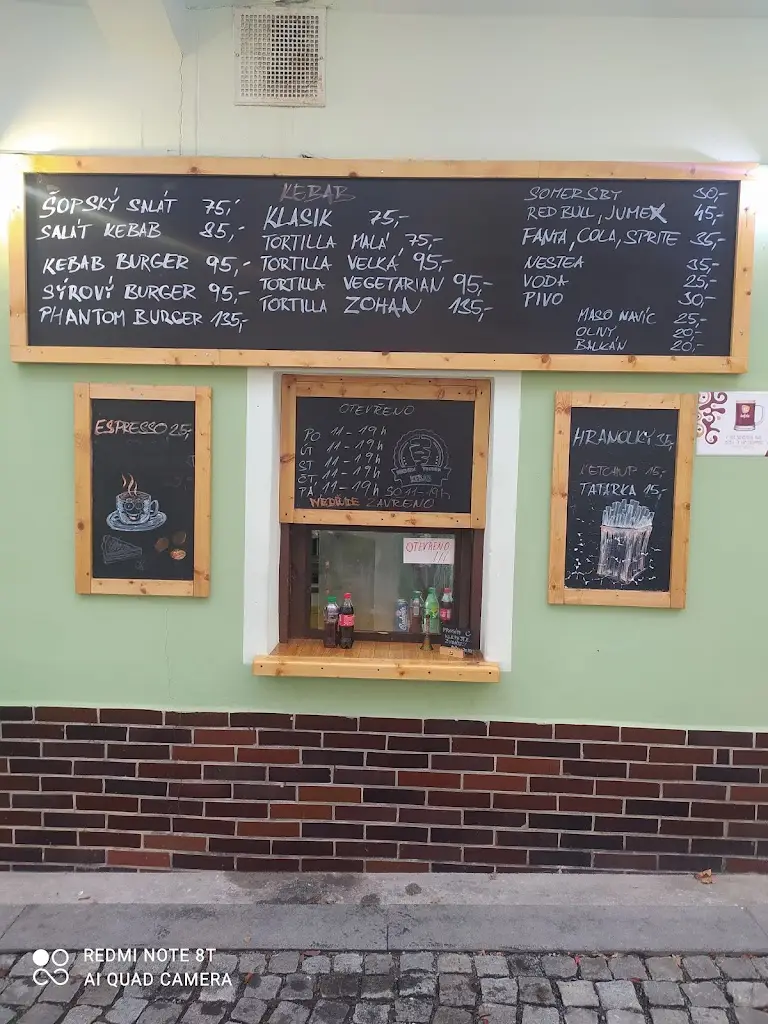 ŠOPSKÝ SALÁT 75,-
SALÁT KEBAB 85,-
KEBAB BURGER 95,-
SÝROVÝ BURGER 95,-
PHANTOM BURGER 135,-
KEBAB
KLASIK 75,-
TORTILLA MALÁ 75,-
TORTILLA VELKÁ 95,-
TORTILLA VEGETARIAN 95,-
TORTILLA ZOHAN 135,-
SOMERSBY 50,-
RED BULL, JUMEX 45,-
FANTA, COLA, SPRITE 35,-
NESTEA 35,-
VODA 25,-
PIVO 30,-
MASO NAVÍC 25,-
OLIVY 20,-
BALKÁN 20,-
ESPRESSO 25,-
OTEVŘENO
PO 11-19h
ÚT 11-19h
ST 11-19h
ČT, 11-19h
PÁ, 11-19h SO 11-19h
NEDĚLE ZAVŘENO
KEBAB
OTEVŘENO
!!!
HRANOLKY
KETCHUP 15,-
TATARKA 15,-
REDMI NOTE 8T
AI QUAD CAMERA